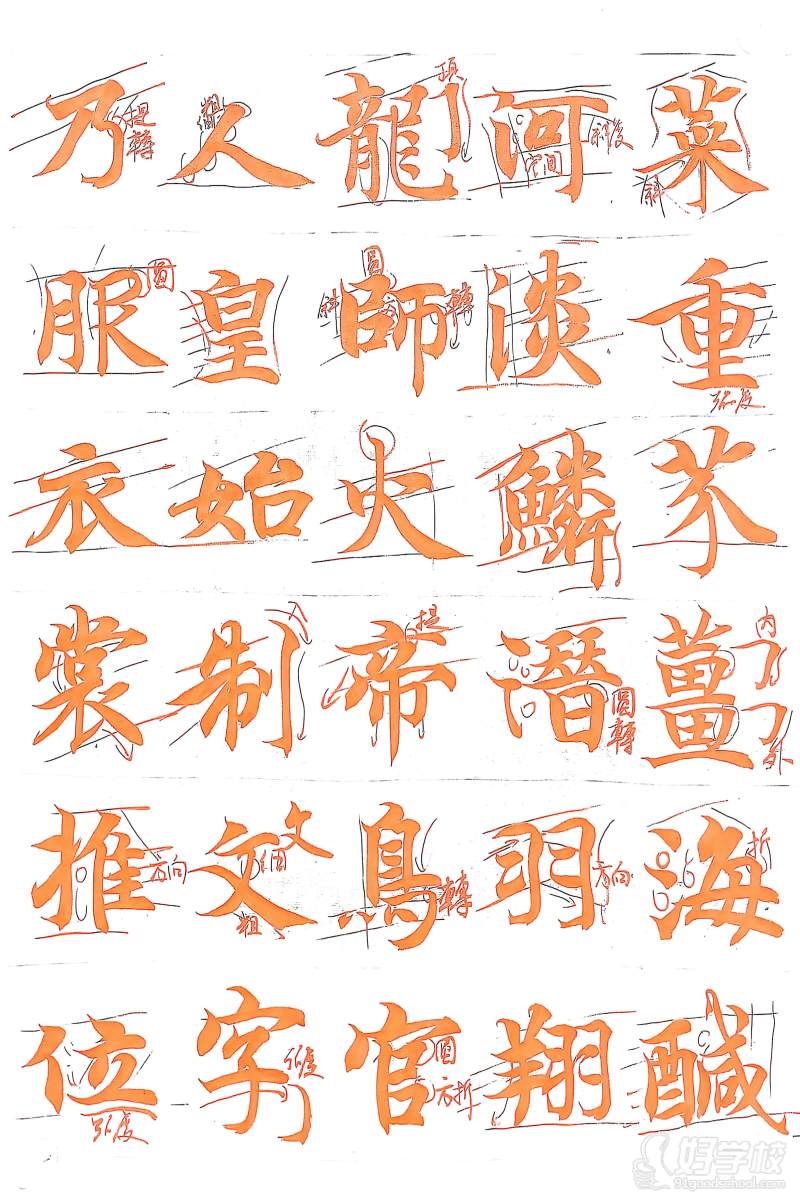 菜重芥薑海鹹
河淡鱗潛羽翔
龍師火帝鳥官
人皇始制文字
乃服衣裳推位
斜
弧度
內
外
折
斜度
空間
圓轉
方向
頂
圓
斜
轉
提
轉
圓
方折
粗
文
細
粗
弧度
提轉
圓
方向
弧度
好学校
91goodschool.com